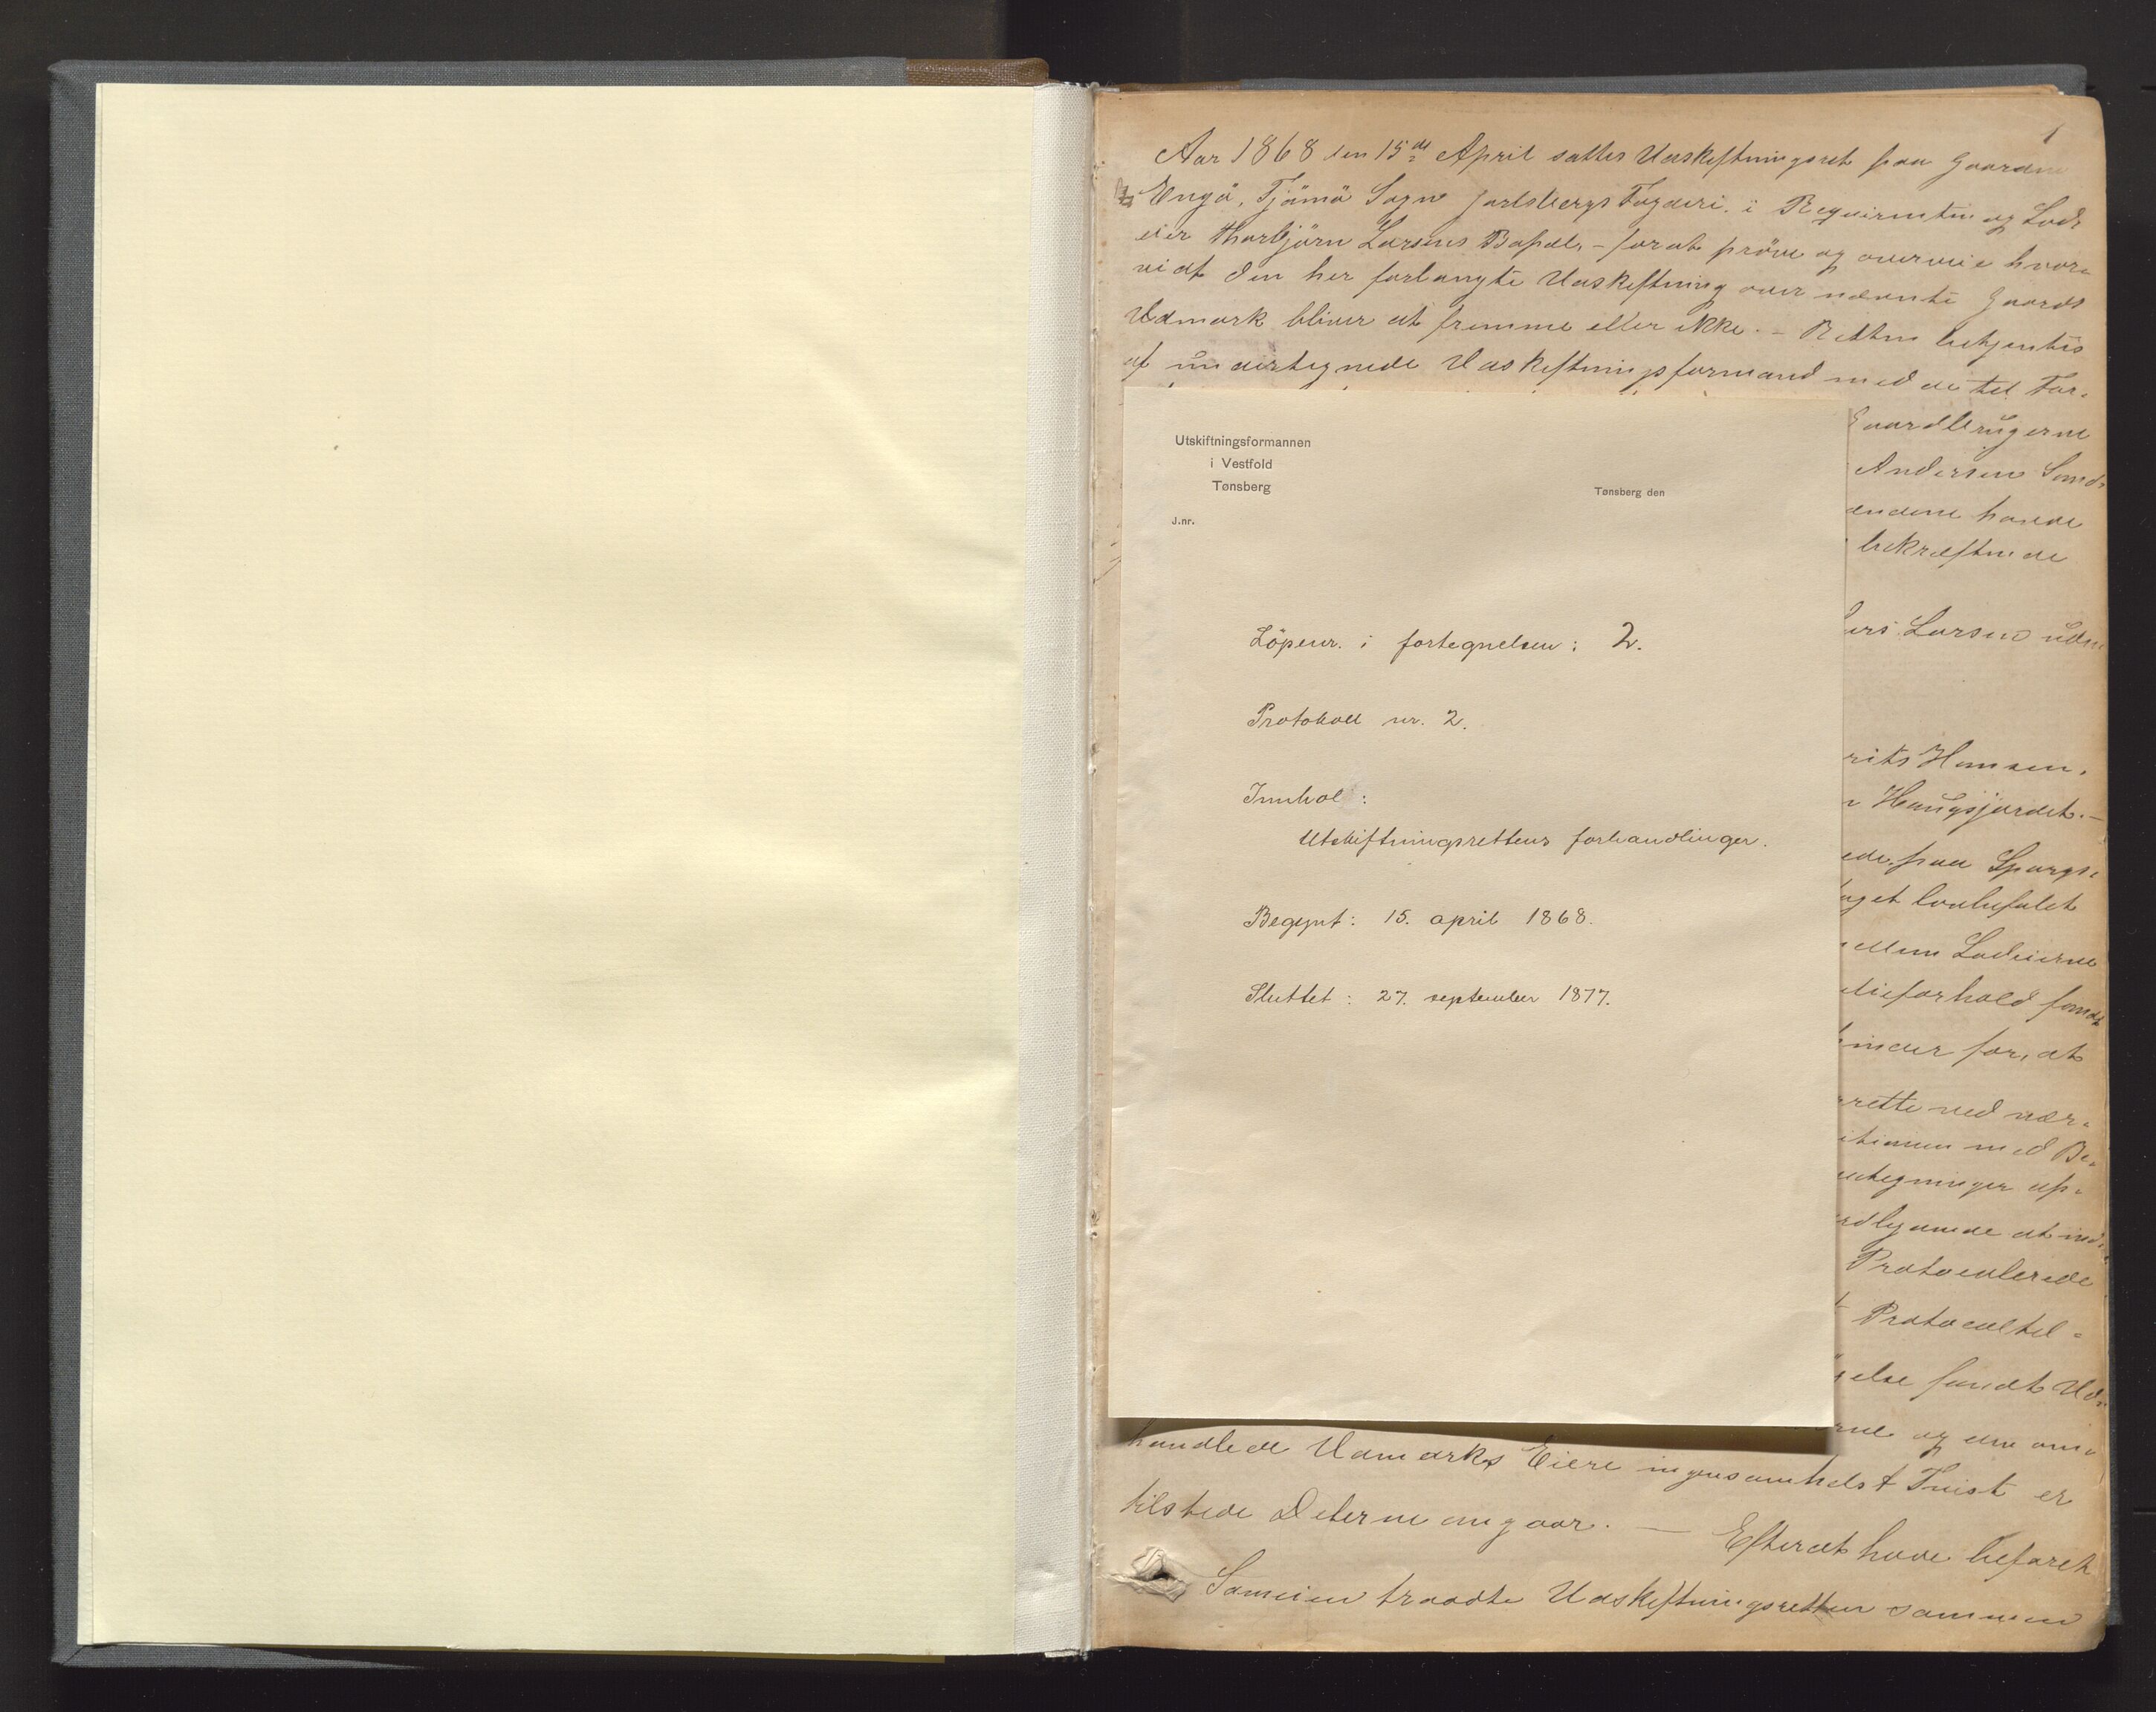 1
Aar 1868 den 15de April sattes Udskiftningsret paa Gaarden
Engö, Tjömö Sogn Jarlsbergs Fogderi, i Reqvirenten og Lods
eier Thorbjörn Larsens Bopæl, – for at pröve og overveie hvor-
vidt den her forlangte Udskiftning over nævnte Gaards
Udmark bliver at fremme eller ikke. – Retten betjentes
af undertegnede Udskiftningsformand med de til For-
Gaardbrugerne
Andersen
mændene havde
bekræftende
Lars Larsen
Hansen,
Haugsjordet. –
paa Spørgs-
lovbefalet
mellem Lodeierne
forhold
hinder for, at
rette ved
med Be-
tegninger
at ind-
Protocolerede
Protocoltil-
else fandt Ud-
og den om-
handlede Udmarks Eiere ingensomhelst Tvist er
tilstede Delerne angaar. — Efterat have befaret
Sameien traadte Udskiftningsretten sammen
Utskiftningsformannen
i Vestfold
Tønsberg
Tønsberg den
J.nr.
Löpenr. i fortegnelsen: 2.
Protokoll nr. 2.
Innhol :
Utskiftningsrettens forhandlinger.
Begynt: 15. april 1868.
Sluttet: 27. september 1877.